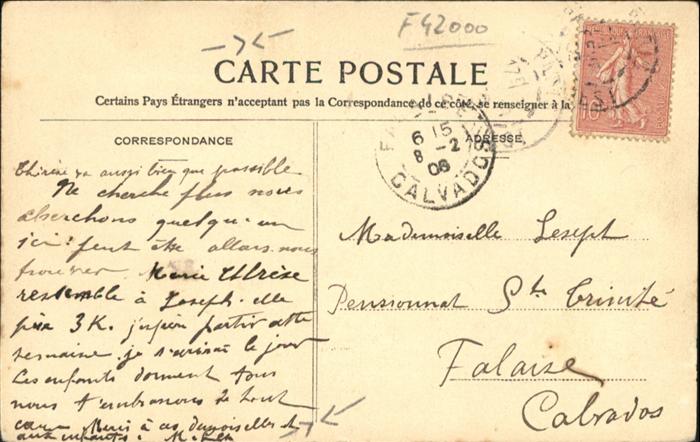 F42000
CARTE POSTALE
Certains Pays Étrangers n'acceptant pas la Correspondance de ce côté, se renseigner à la
CORRESPONDANCE
Thérèse va aussi bien que possible
Ne cherche plus nous
cherchons quelqu'un
ici. peut être allons nous
trouver Marie Thérèse
ressemble à Joseph. elle
pèse 3K. partir cette
semaine je le jour
Les enfants donnent tous
nous t'embrassons de tout
cœur Merci à ces demoiselles et
aux enfants
ADRESSE
6 15
8 -2
06
CALVADOS
10
Mademoiselle Joseph
Pensionnat Ste Trinité
Falaise
Calvados